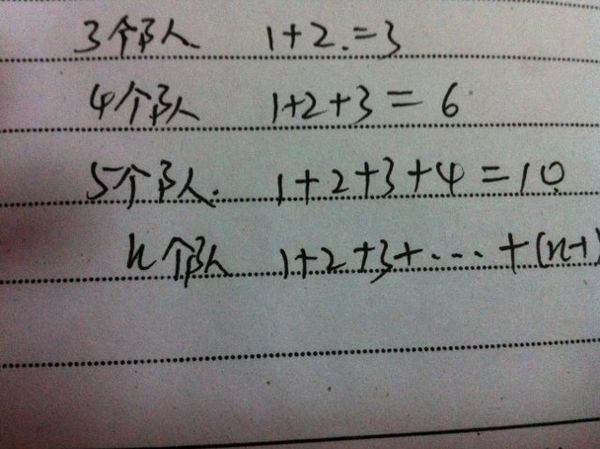 3个队 1+2=3
4个队 1+2+3=6
5个队. 1+2+3+4=10
n个队 1+2+3+...+(n-1)